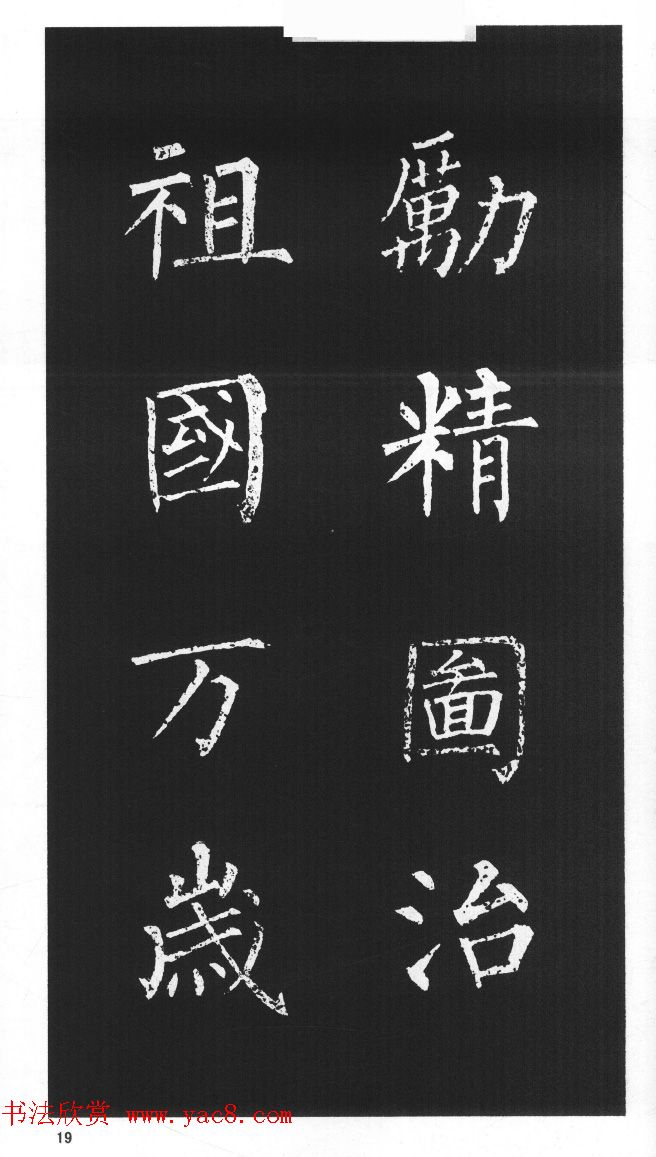 勵精圖治
祖國万歲
书法欣赏 www.yac8.com
19